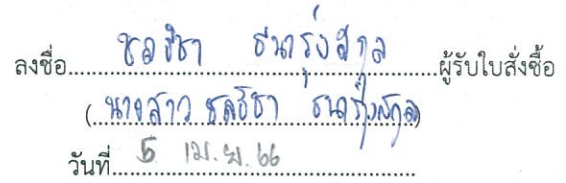 ลงชื่อ ชลธิชา ธนารุ่งสกุล ผู้รับใบสั่งซื้อ
(นางสาว ชลธิชา ธนารุ่งสกุล)
วันที่ 5 เม.ย. 66